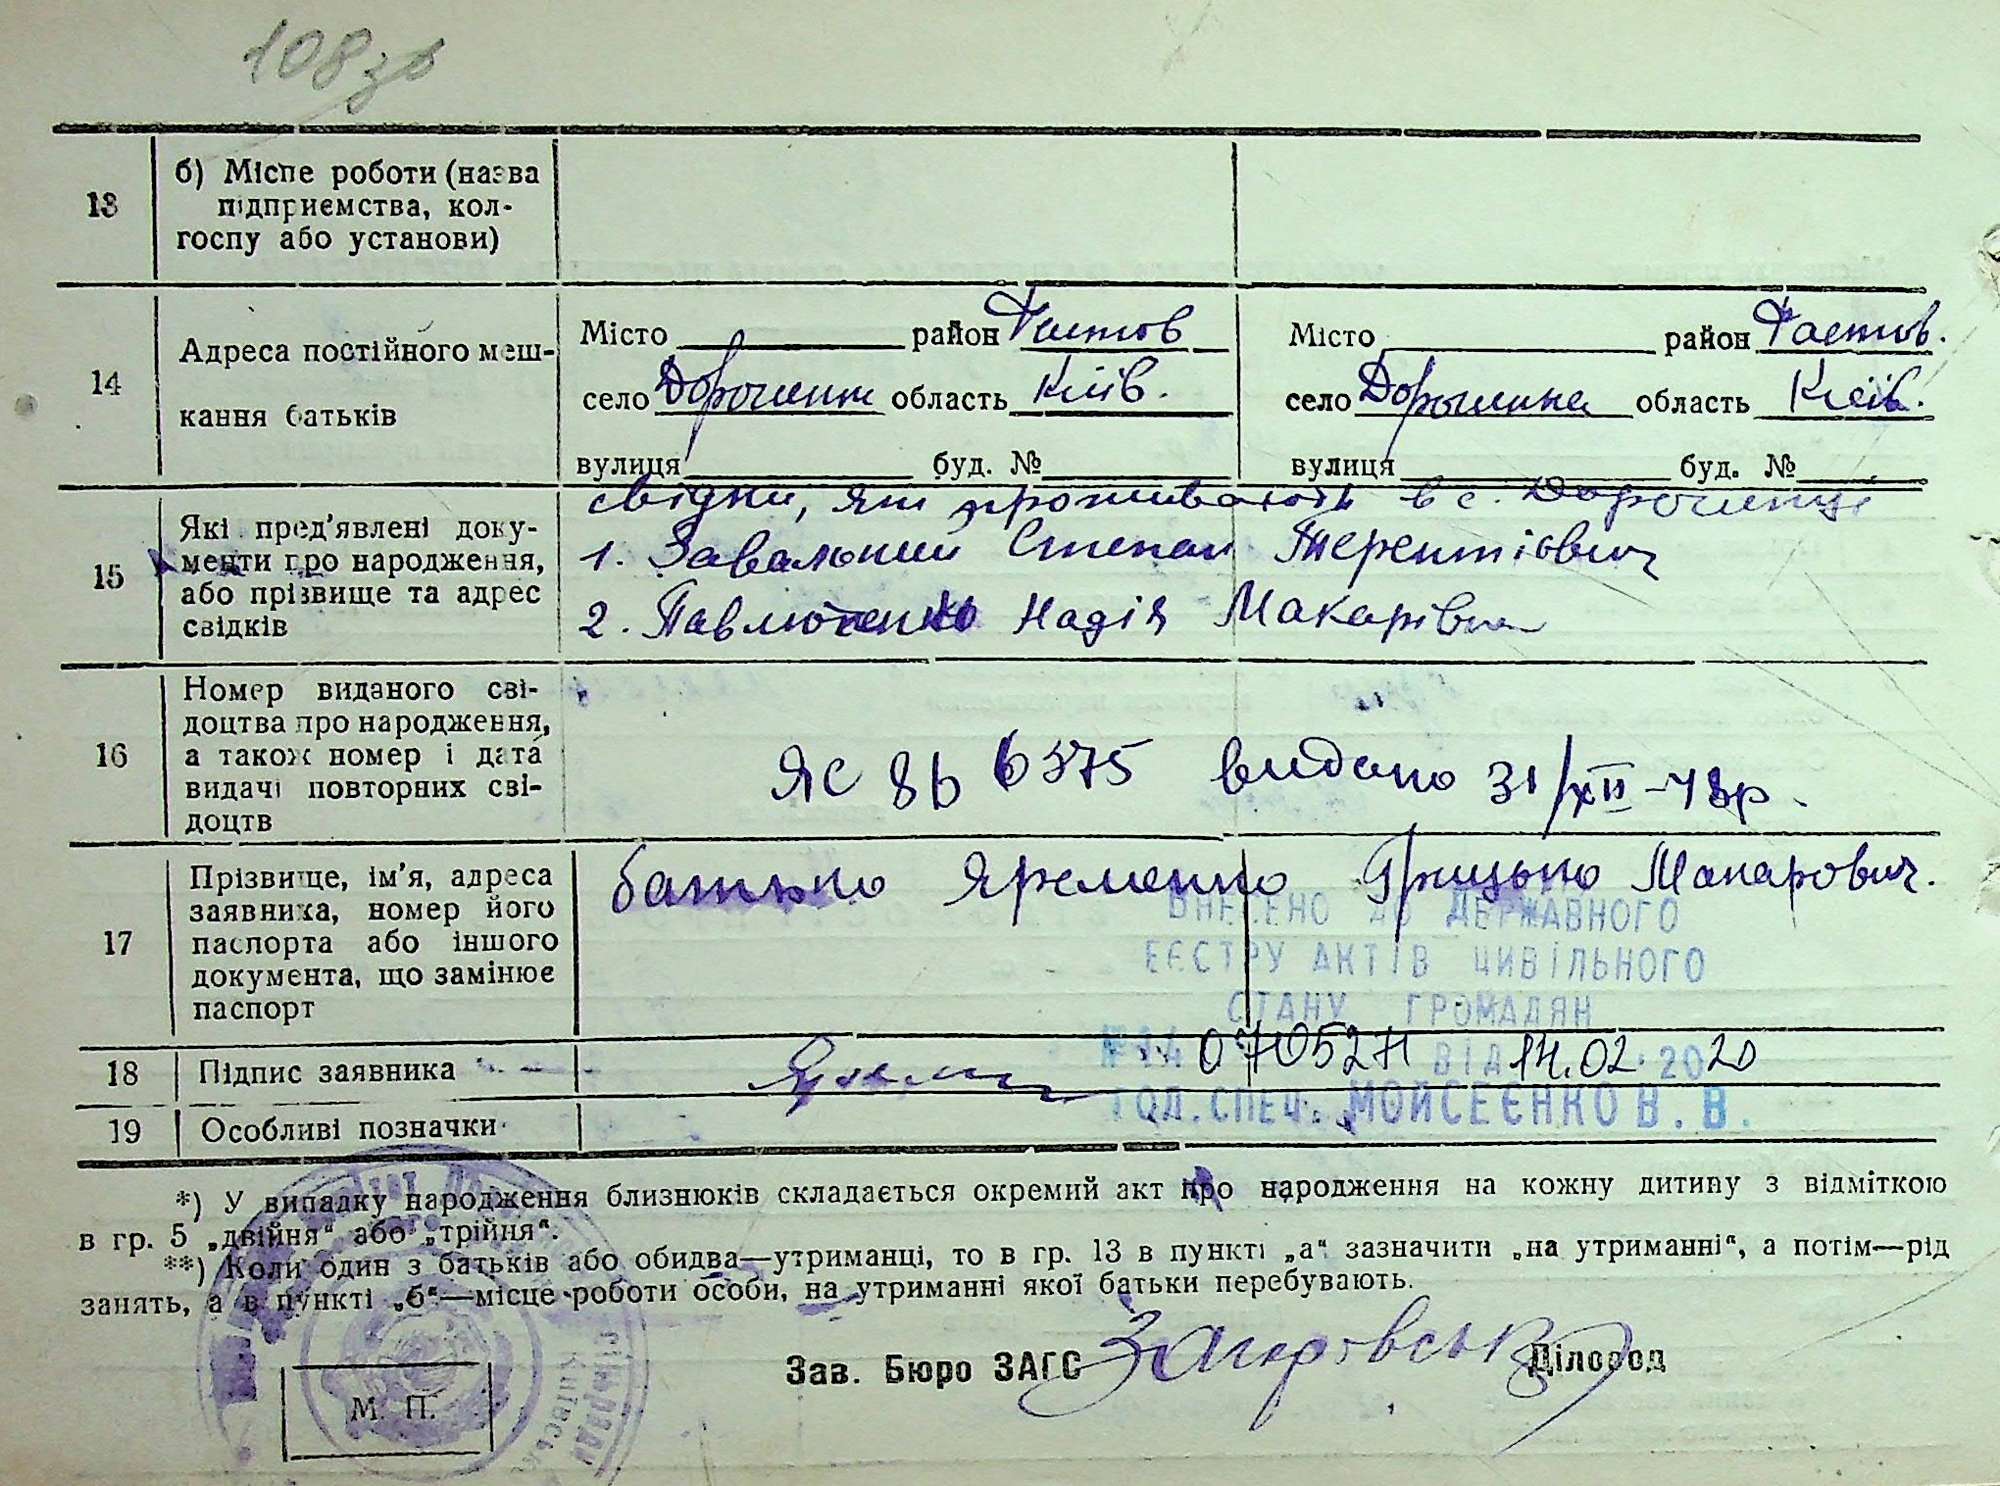 108зв
13
б) Місце роботи (назва
підприємства, кол-
госпу або установи)
14
Адреса постійного меш-
кання батьків
Місто район Фастов
село Дорошенк область Київ.
вулиця буд. №
Місто район Фастов.
село Дорошинка область Київ.
вулиця буд. №
15
Які пред'явлені доку-
менти про народження,
або прізвище та адрес
свідків
свідки, які проживають в с. Дорошинці
1. Завальний Степан Терентієвич
2. Павлюченко Надія Макарівна
16
Номер виданого сві-
доцтва про народження,
а також номер і дата
видачі повторних сві-
доцтв
ЯС 86 6375 видано 31/XII-48р.
17
Прізвище, ім'я, адреса
заявника, номер його
паспорта або іншого
документа, що замінює
паспорт
батько Яременко Грицько Макарович.
ВНЕСЕНО ДО ДЕРЖАВНОГО
ЕЄСТРУ АКТІВ ЦИВІЛЬНОГО
СТАНУ ГРОМАДЯН
ВІД 14.02.2020
ГОЛ.СПЕЦ. МОЙСЕЄНКО В.В.
18
Підпис заявника
19
Особливі позначки
*) У випадку народження близнюків складається окремий акт про народження на кожну дитину з відміткою
в гр. 5 „двійня“ або „трійня“.
**) Коли один з батьків або обидва—утриманці, то в гр. 13 в пункті „а“ зазначити „на утриманні“, а потім—рід
занять, а в пункті „б“—місце роботи особи, на утриманні якої батьки перебувають.
Зав. Бюро ЗАГС Діловод
М. П.